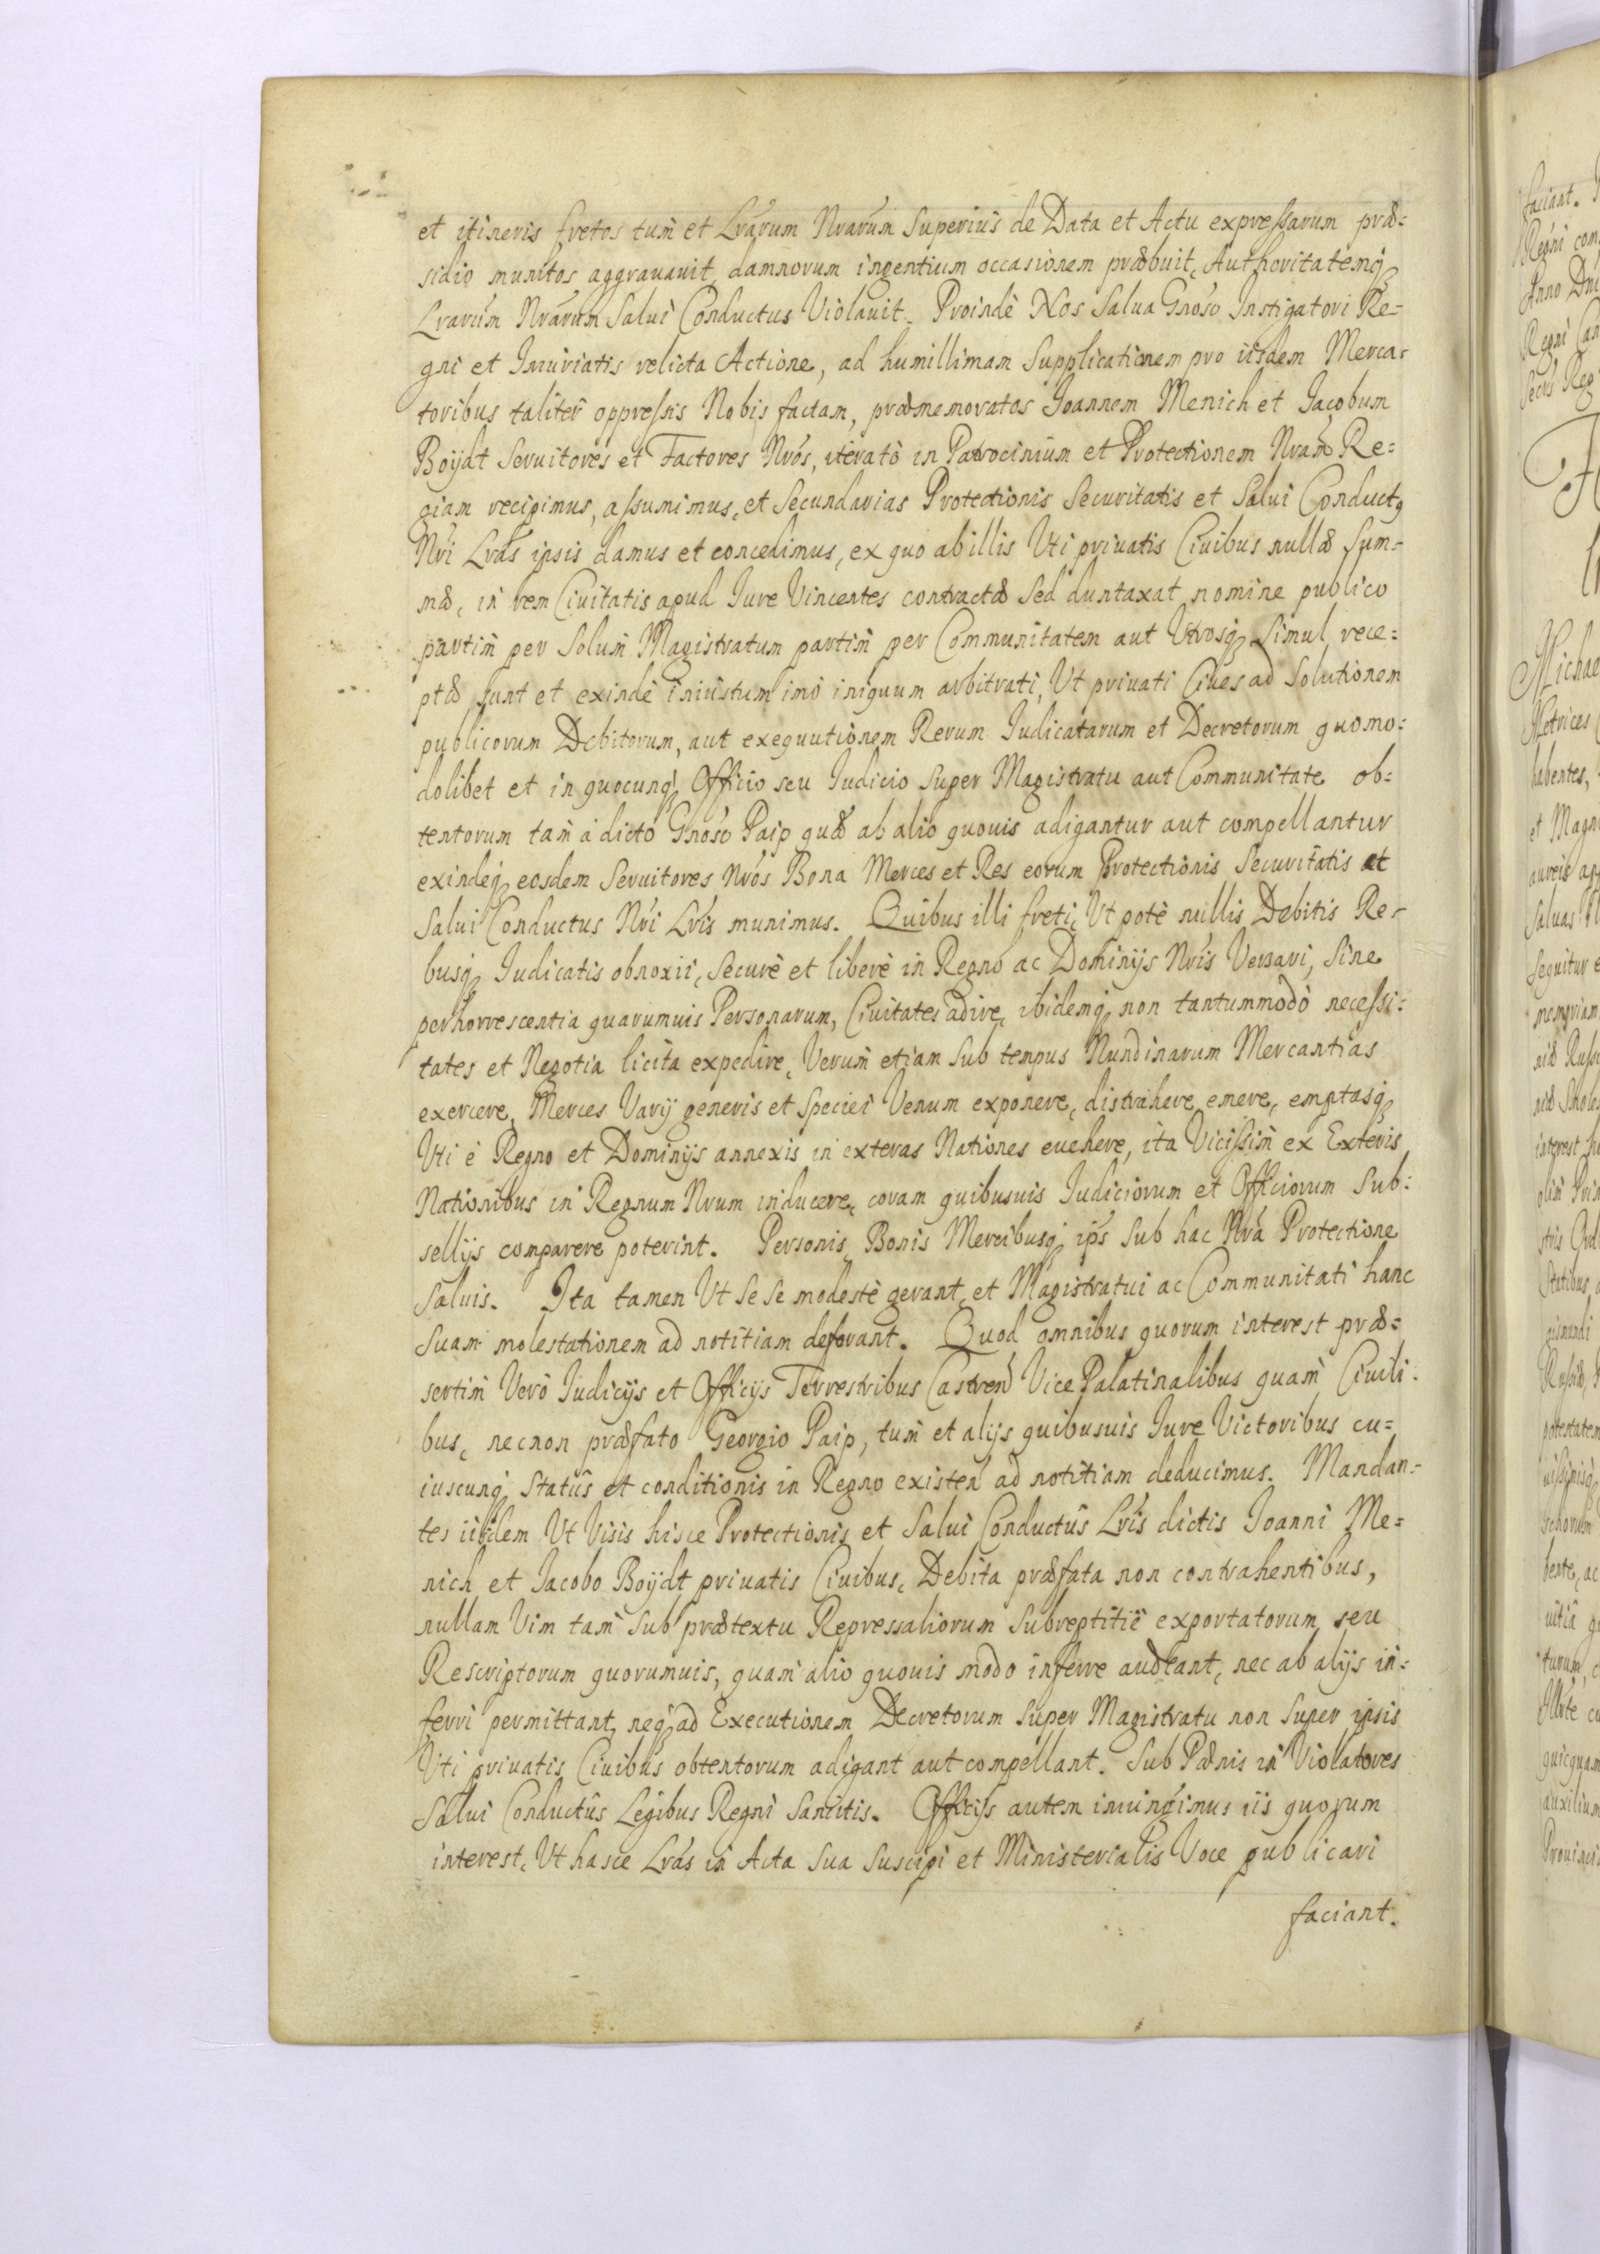 et itineris fretos tum et Lrarum Nrarum superius de Data et Actu expressarum præ=
sidio munitos aggrauauit, damnorum ingentium occasionem præbuit, Authoritatemq
Lrarum Nrarum Salui Conductus Violauit. Proindè Nos Salua Gnoso Instigatori Re=
gni et Iniuriatis relicta Actione, ad humillimam supplicationem pro iisdem Merca=
toribus taliter oppressis Nobis factam, præmemoratos Joannem Menich et Jacobum
Boijdt Seruitores et Factores Nros, iterato in Patrocinium et Protectionem Nram Re=
giam recipimus, assumimus, et Secundarias Protectionis Securitatis et Salui Conductq
Nri Lras ipsis damus et concedimus, ex quo ab illis Vti priuatis Ciuibus nullæ sum=
mæ, in rem Ciuitatis apud Iure Vincentes contractæ sed duntaxat nomine publico
partim per solum Magistratum partim per Communitatem aut Vtrosq simul rece=
ptæ sunt et exindè iniustum imò iniquum arbitrati, Vt priuati Ciues ad solutionem
publicorum Debitorum, aut exequutionem Rerum Iudicatarum et Decretorum quomo=
dolibet et in quocunq Officio seu Iudicio super Magistratu aut Communitate ob=
tentorum tam à dicto Gnoso Paip quæ ab alio quouis adigantur aut compellantur
exindeq eosdem Seruitores Nros Bona Merces et Res eorum Protectionis Securitatis et
Salui Conductus Nri Lris munimus. Quibus illi freti, Vt potè nullis Debitis Re=
busq Iudicatis obnoxii, securè et liberè in Regno ac Dominijs Nris Versari, sine
perhorrescentia quarumuis Personarum, Ciuitates adire, ibidemq non tantummodò necessi=
tates et Negotia licita expedire, Verum etiam sub tempus Nundinarum Mercantias
exercere, Merces Varij generis et speciei Venum exponere, distrahere, emere, emptasq
Vti è Regno et Dominijs annexis in exteras Nationes euehere, ita Vicissim ex Exteris
Nationibus in Regnum Nrum inducere, coram quibusuis Iudiciorum et Officiorum Sub=
sellijs comparere poterint. Personis, Bonis Mercibusq ips sub hac Nra Protectione
saluis. Ita tamen Vt se se modestè gerant, et Magistratui ac Communitati hanc
suam molestationem ad notitiam deferant. Quod omnibus quorum interest præ=
sertim Verò Iudicijs et Officijs Terrestribus Castren Vice Palatinalibus quam Ciuili=
bus, necnon præfato Georgio Paip, tum et alijs quibusuis Iure Victoribus cu=
iuscunq status et conditionis in Regno existen ad notitiam deducimus. Mandan=
tes iisdem Vt Visis hisce Protectionis et Salui Conductus Lris dictis Joanni Me=
nich et Jacobo Boijdt priuatis Ciuibus, Debita præfata non contrahentibus,
nullam Vim tam sub prætextu Repressaliorum subreptitiè exportatorum seu
Rescriptorum quorumuis, quam alio quouis modo inferre audeant, nec ab alijs in=
ferri permittant, neq ad Executionem Decretorum super Magistratu non super ipsis
Vti priuatis Ciuibus obtentorum adigant aut compellant. Sub Pænis in Violatores
Salui Conductus Legibus Regni Sancitis. Officijs autem iniungimus iis quorum
interest, Vt hasce Lras in Acta sua suscipi et Ministerialis Voce publicari
faciant.